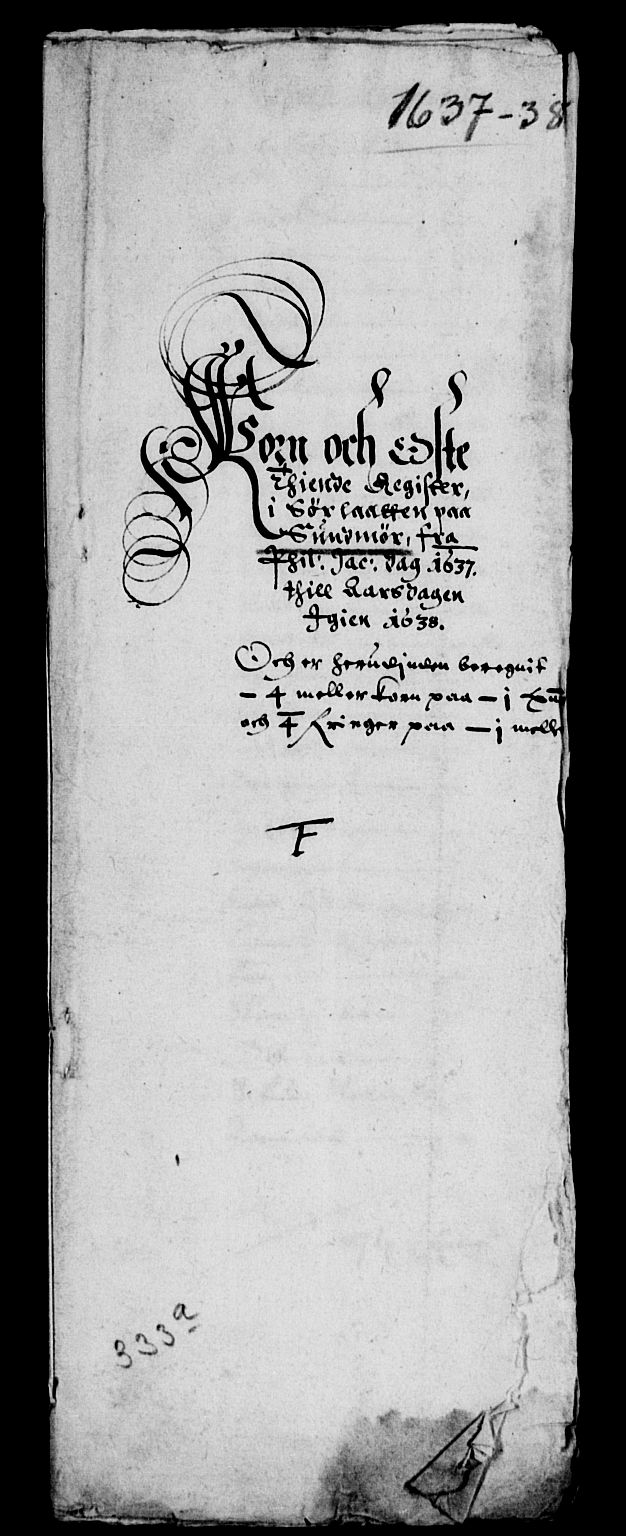 1637-38
Korn och Oste
Thiende Register,
i Sørlaatten paa
Sundmör, fra
Phil: Jac: dag .1637.
thill Aarsdagen
Igien .1638.
Och er herudinden beregnit
– 4 meller korn paa – j
och 4 Kringer paa – j melle
F
333a